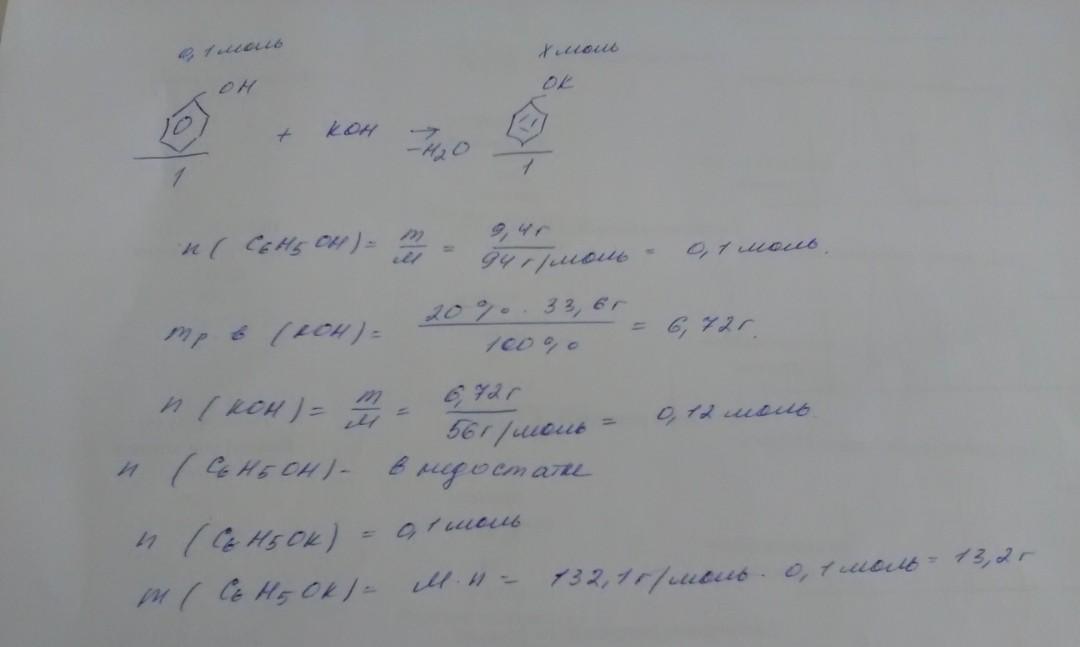 0,1 моль X моль
OH OK
+ KOH → -H₂O
1 1
n (C₆H₅OH) = m/M = 9,4г / 94 г/моль = 0,1 моль.
mр.в (KOH) = 20% · 33,6г / 100% = 6,72 г.
n (KOH) = m/M = 6,72г / 56г/моль = 0,12 моль
n (C₆H₅OH) - в недостатке
n (C₆H₅OK) = 0,1 моль
m (C₆H₅OK) = M·n = 132,1г/моль · 0,1 моль = 13,2 г